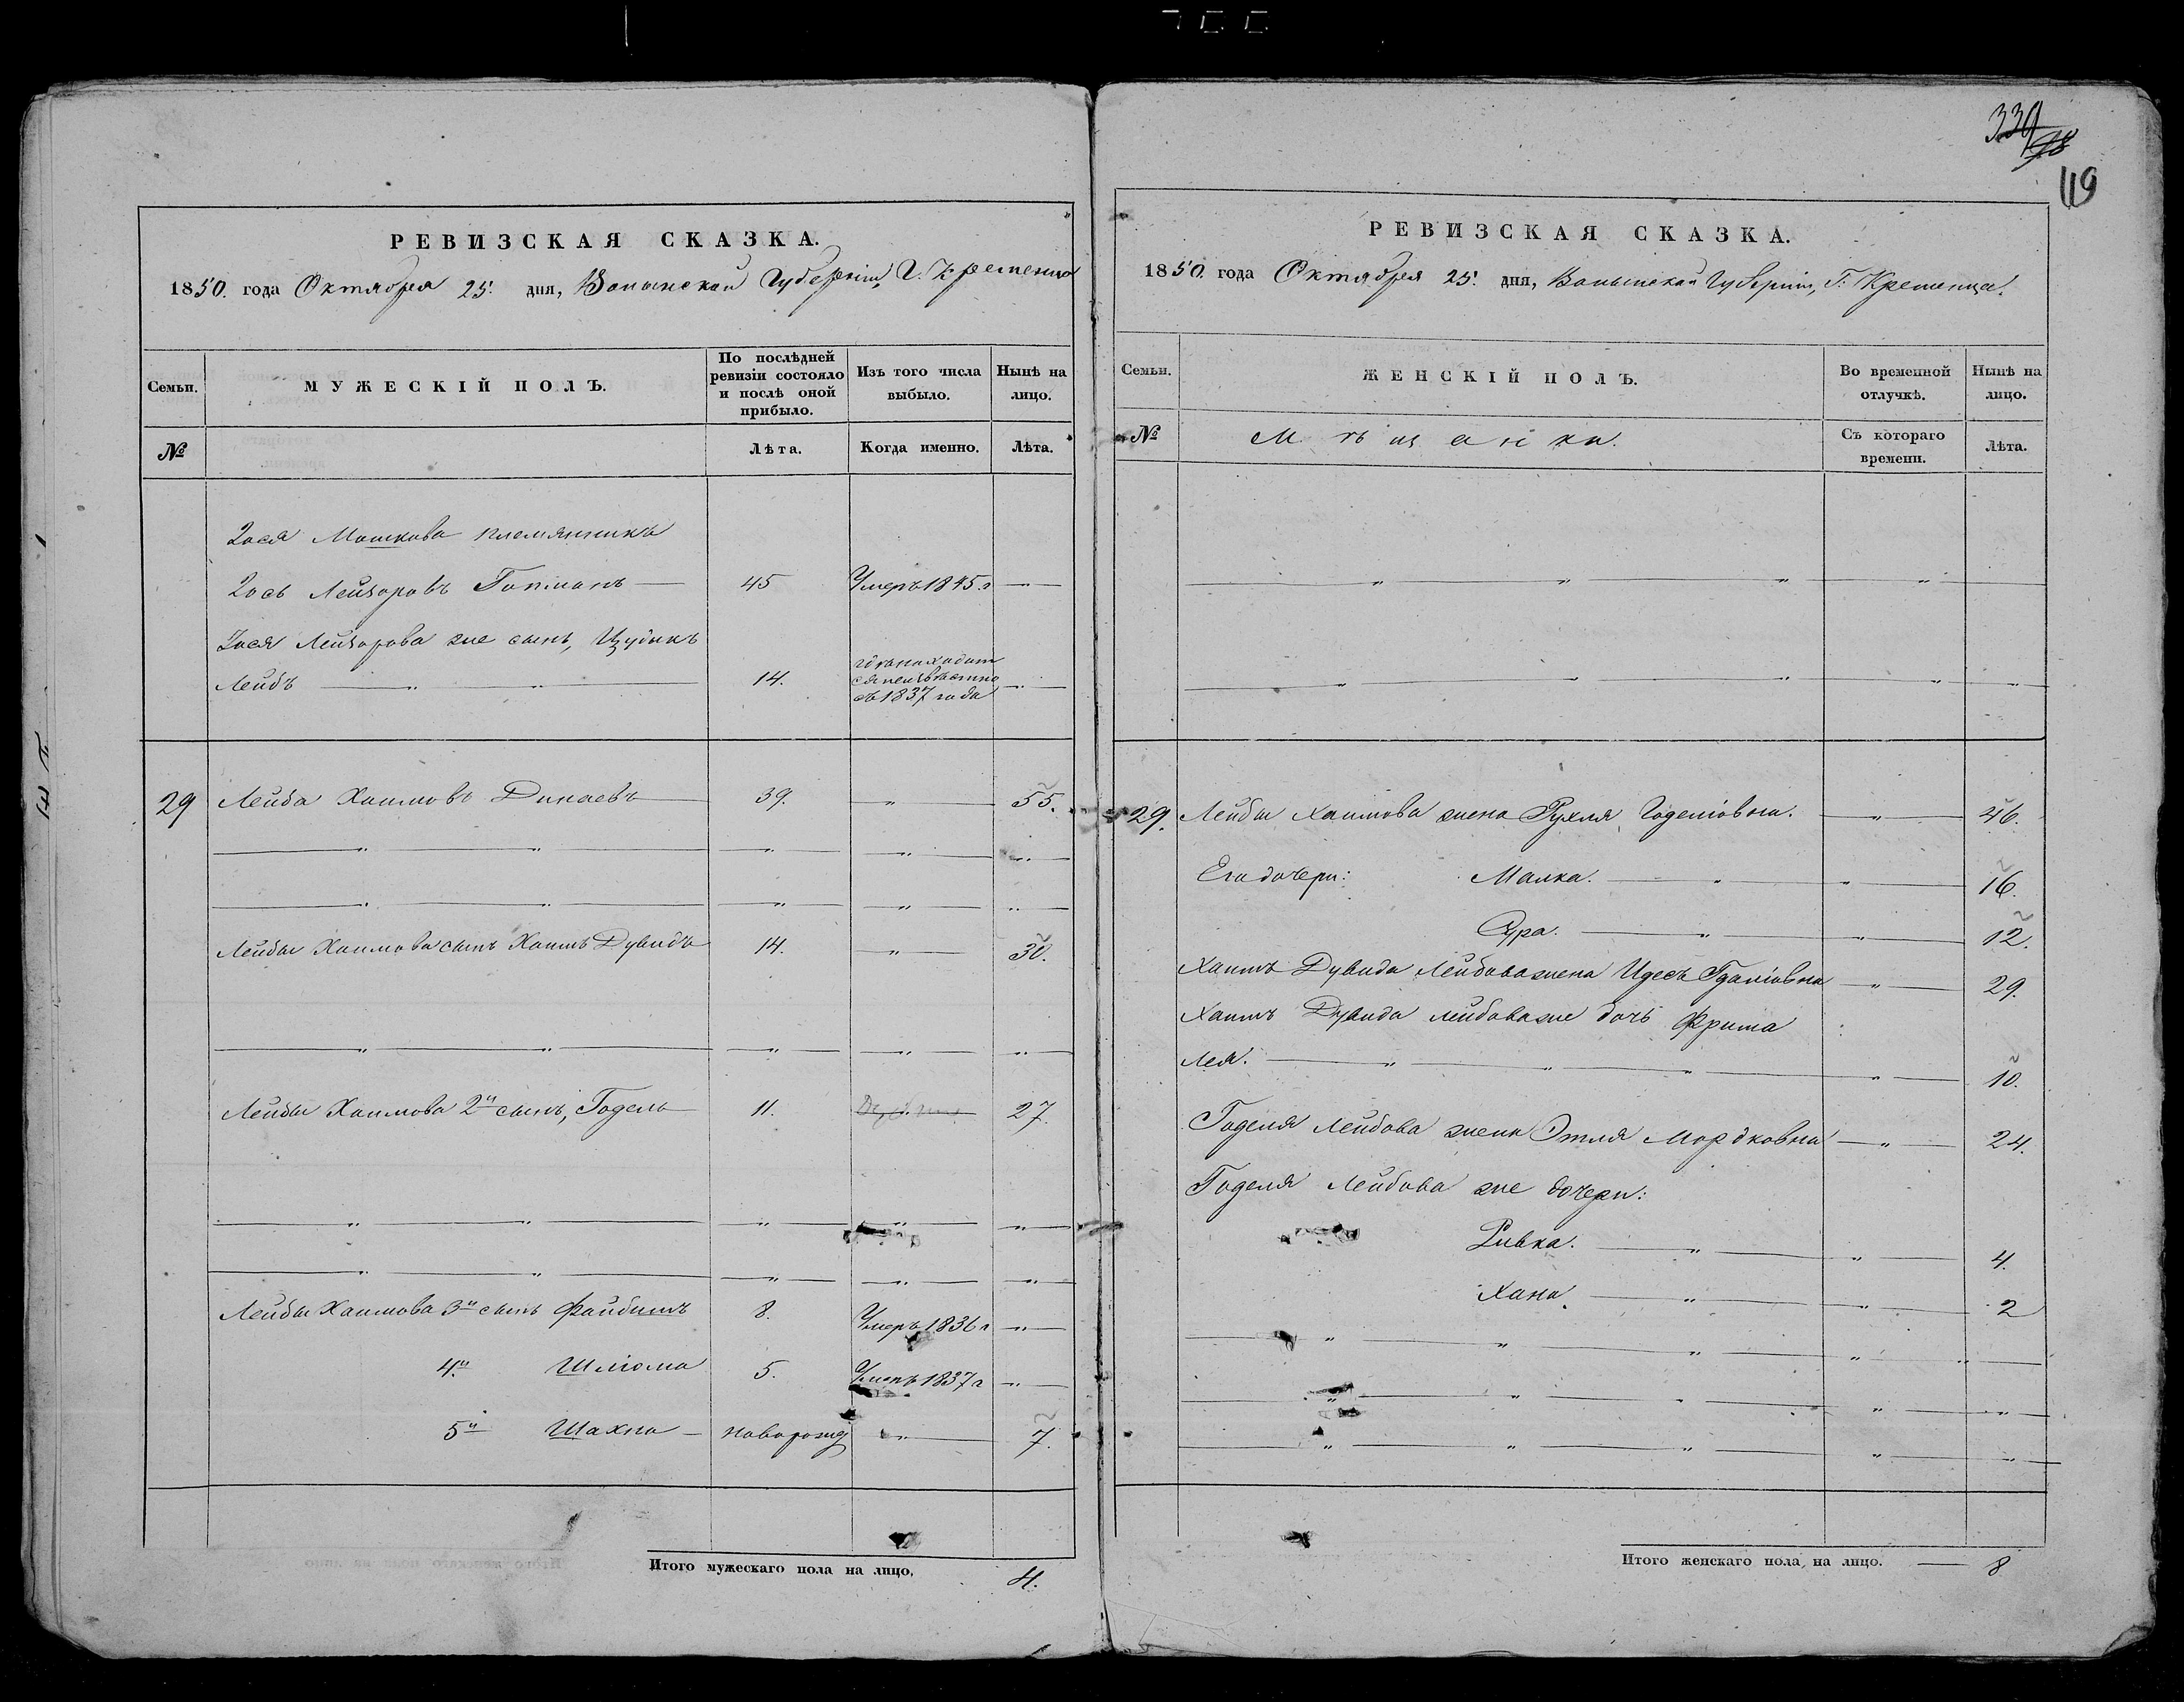 339
98
119
РЕВИЗСКАЯ СКАЗКА.
1850. года Октября 25. дня, Волынской Губернiи, Г. Кременца
Семьи. МУЖЕСКIЙ ПОЛЪ. По послѣдней ревизiи состояло и послѣ оной прибыло. Изъ того числа выбыло. Нынѣ на лицо.
№ Лѣта. Когда именно. Лѣта.
Иося Мошкова племянникъ
Иось Лейзоровъ Готманъ 45 Умеръ 1845 г
Иося Лейзорова же сынъ, Иудыкъ
Лейбъ 14. гдѣ находит
ся неизвѣстно
съ 1837 года
29 Лейба Хаимовъ Динаевъ 39. " 55.
Лейбы Хаимова сынъ Хаимъ Дувидъ 14. " 30.
Лейбы Хаимова 2й сынъ, Годель 11. 27.
Лейбы Хаимова 3й сынъ Файбишъ 8. Умеръ 1836 г
4й Шлiома 5. Умеръ 1837 г
5й Шахна новорожд " 7.
Итого мужескаго пола на лицо. 4.
РЕВИЗСКАЯ СКАЗКА.
1850. года Октября 25. дня, Волынской Губернiи, Г. Кременца.
Семьи. ЖЕНСКIЙ ПОЛЪ. Во временной отлучкѣ. Нынѣ на лицо.
№ Мѣщанки. Съ котораго времени. Лѣта.
29. Лейбы Хаимова жена Рухля Годелiовна. " 46.
Его дочери: Малка. " 16.
Сура. " 12.
Хаимъ Дувида Лейбова жена Идесъ Гдалiовна " 29.
Хаимъ Дувида Лейбова же дочь Фрима
Лея. " 10.
Годеля Лейбова жена Этля Мордковна " 24.
Годеля Лейбова же дочери:
Ривка. " 4.
Хана. " 2
Итого женскаго пола на лицо. 8